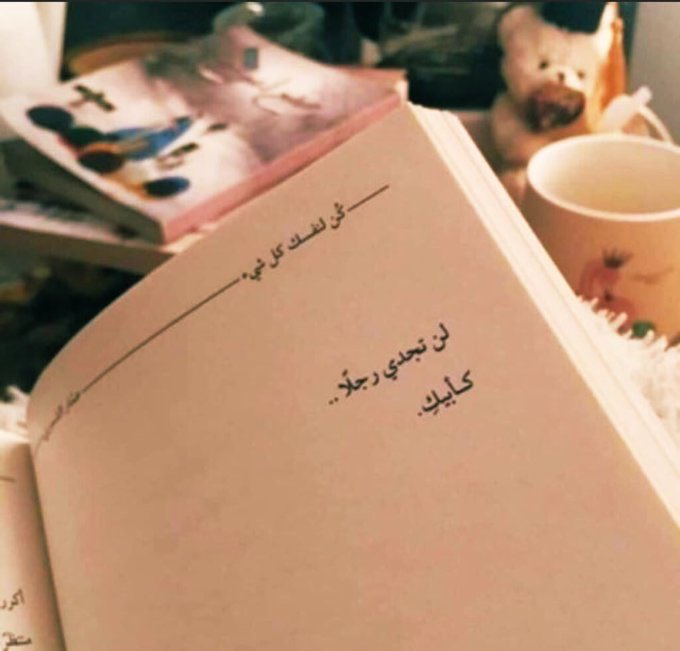 كُن لنفسك كل شيء
لن تجدي رجلًا..
كـأبيكِ.